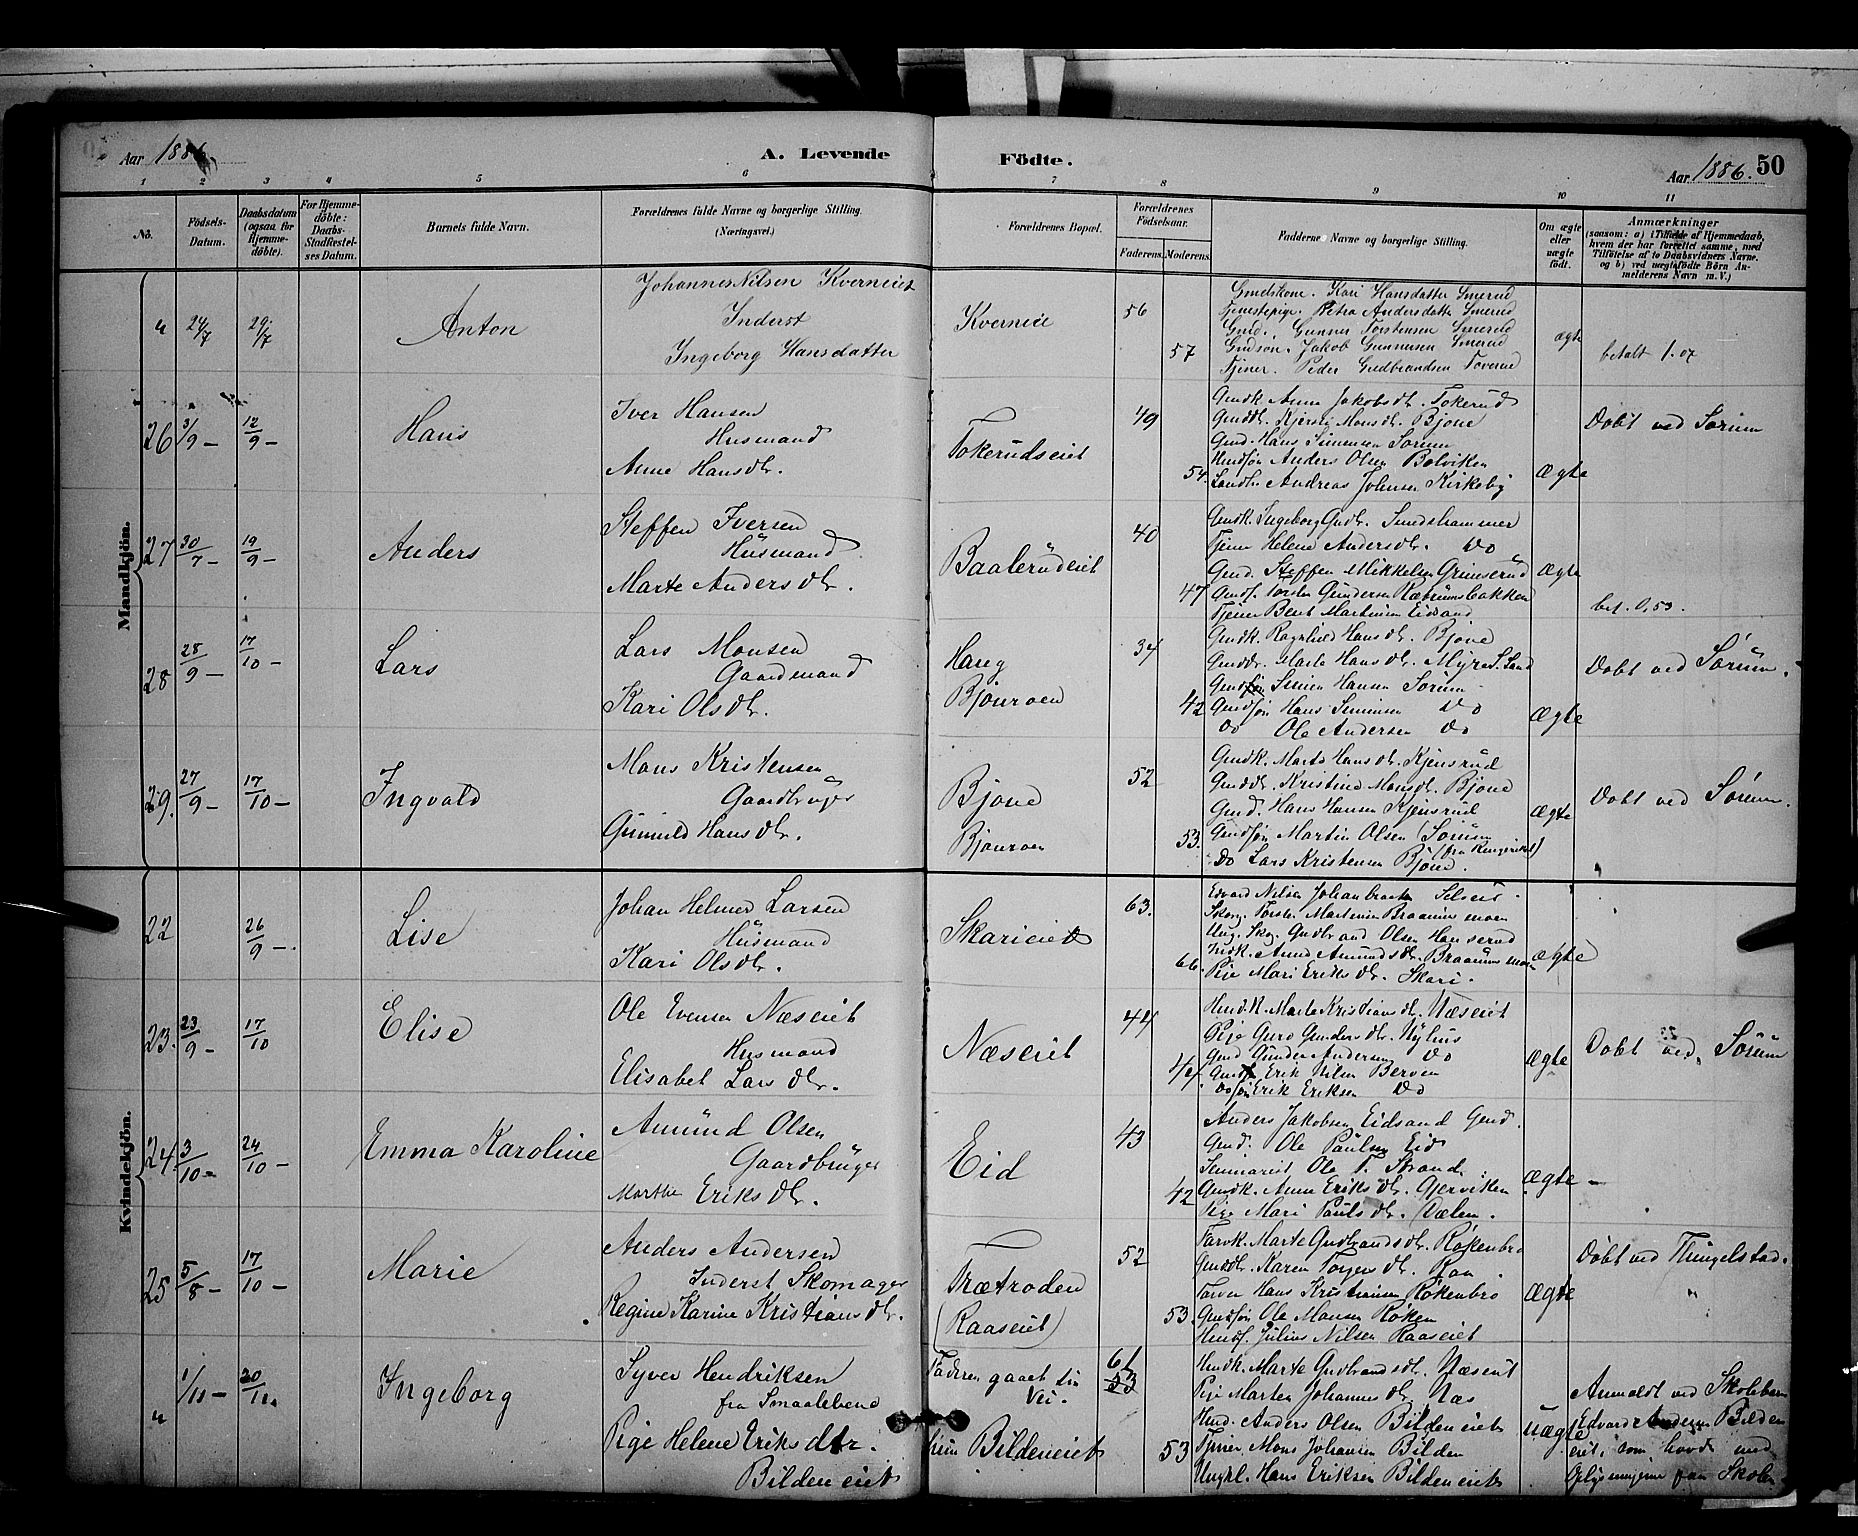 Aar 1886.
A. Levende Födte.
Aar 1886. 50
1 2 3 4 5 6 7 8 9 10 11
No. Födsels-Datum. Daabsdatum (ogsaa for Hjemmedöbte). For Hjemmedöbte: Daabs-Stadfæstelses Datum. Barnets fulde Navn. Forældrenes fulde Navne og borgerlige Stilling. (Næringsvei.) Forældrenes Bopæl. Forældrenes Födselsaar. Faderens. Moderens. Faddernes Navne og borgerlige Stilling. Om ægte eller uægte födt. Anmærkninger (saasom: a) i Tilfælde af Hjemmedaab, hvem der har forrettet samme, med Tilföielse af to Daabsvidners Navne. og b) ved uægtefödte Börn Anmelderens Navn m. V.)
Mandkjön.
" 24/7 29/7 Anton
Johannes Nilsen Kverneiet
Inderst
Ingeborg Hansdatter
Kverneie 56 57
Gmdskone. Kari Hansdatter Smerud
Tjenstepige. Petra Andersdatter Smerud
Gmd. Gunner Torstensen Smerud
Gmdsön. Jakob Gunnersen Smerud
Tjener. Peder Gudbrandsen Toverud
ægte
betalt 1.07
26 3/9 - 12/9 - Hans
Iver Hansen
Husmand
Anne Hansdtr.
Tokerudseiet 49 54.
Gmdk. Anne Jakobsdt. Tokerud
Gmddt. Kjersti Monsdt. Bjone
Gmd. Hans Simensen Sørum
Hmdsøn Anders Olsen Bolviken
Landh. Andreas Johnsen Kirkeby
Ægte
Døbt ved Sørum
27 30/7 - 19/9 - Anders
Steffen Iversen
Husmand
Marte Andersdtr.
Baalerudeiet 40 47
Gmdk. Ingeborg Gudt. Smedshammer
Tjener Helene Andersdt. Do
Gmd. Steffen Mikkelsen Grimserud
Gmds. Torsten Gundersen Næbrumsbakken
Tjener Bent Martinsen Eidsand
Ægte
bet. 0,53.
28 28/9 - 17/10 - Lars
Lars Monsen
Gaardmand
Kari Olsdtr.
Haug
Bjoneroen 34 42
Gmdk. Ragnhild Hansdt. Bjone
Gmddt. Marte Hansdt. Myra S. Land
Gmd Simen Hansen Sørum
Gmdsøn Hans Simensen Do
Do Ole Andersen Do
Ægte
Døbt ved Sørum.
29. 27/9 - 17/10 - Ingvald
Mons Kristensen
Gaardbruger
Gunnild Hansdtr.
Bjone
Bjoneroen 52 53.
Gmdk. Marte Hansdt. Kjensrud
Gmddt. Kristine Monsdt. Bjone
Gmd. Hans Hansen Kjensrud
Gmdsøn Martin Olsen Sørum
(fra Ringerike)
Do Lars Kristensen Bjone.
Ægte
Døbt ved Sørum.
Kvindekjön.
22 26/9 -. Lise
Johan Helmer Larsen
Husmand
Kari Olsdtr.
Skarieiet 63. 66.
Edvard Nilsen
Martinsen Braarumsmoen
Ung. Skog. Gudbrand Olsen Hanserud
Indk. Anne Amundsdt. Braarumsmoen
Pige Mari Eriksdt. Skari.
Ægte
23. 23/9 - 17/10 Elise
Ole Evensen Næseiet
Husmand
Elisabet Larsdtr.
Næseiet 44
Hmdk. Marte Kristiansdt. Næseiet
Pige Guro Gundersdt. Nyhus
Gmd Gunder Andersen Do
Gmd Erik Nilsen Berven
Do søn Erik Eriksen Do
Ægte
Døbt ved Sørum
24. 3/10 - 24/10 - Emma Karoline
Amund Olsen
Gaardbruger
Marthe Eriksdtr.
Eid 43 42
Anders Jakobsen Eidsand Gmd.
Gmd. Ole Paulsen Eid
Seminarist Ole T. Strand.
Gmdk. Anne Eriksdt. Gjerviken
Pige Mari Paulsdt. Vælen.
Ægte -
25 5/8 - 17/10 - Marie
Anders Andersen
Inderst Skomager
Regine Karine Kristiansdtr.
Trætroden
(Raaseiet) 52 53.
Farvk. Marte Gudbrandsdt. Røkenbro
Gmddt. Karen Torgersdt. Raa
Farver Hans Kristiansen Røkenbro
Gmdsøn Ole Monsen Røken
Hmds. Julius Nilsen Raaseiet
Ægte
Døbt ved Thingelstad.
"
" 1/10 - 20/11. Ingeborg
Syver Hendriksen
fra Smaalehnene
Pige Helene Eriksdtr.
Bildeneiet
Faderen gaaet sin
Vei.
Bildeneiet 61 53 53
Hmdk. Marte Gudbrandsdt. Næseiet
Pige Marten Johannesdt. Næs
Hmd. Anders Olsen Bildeneiet
Tjener Mons Johansen Bilden
Ungkl. Hans Eriksen Bildeneiet
uægte
Anmeldt ved Skolebarn
Edvard Andersen Bilden
eiet, som havde med
Oplysningerne fra Skolen